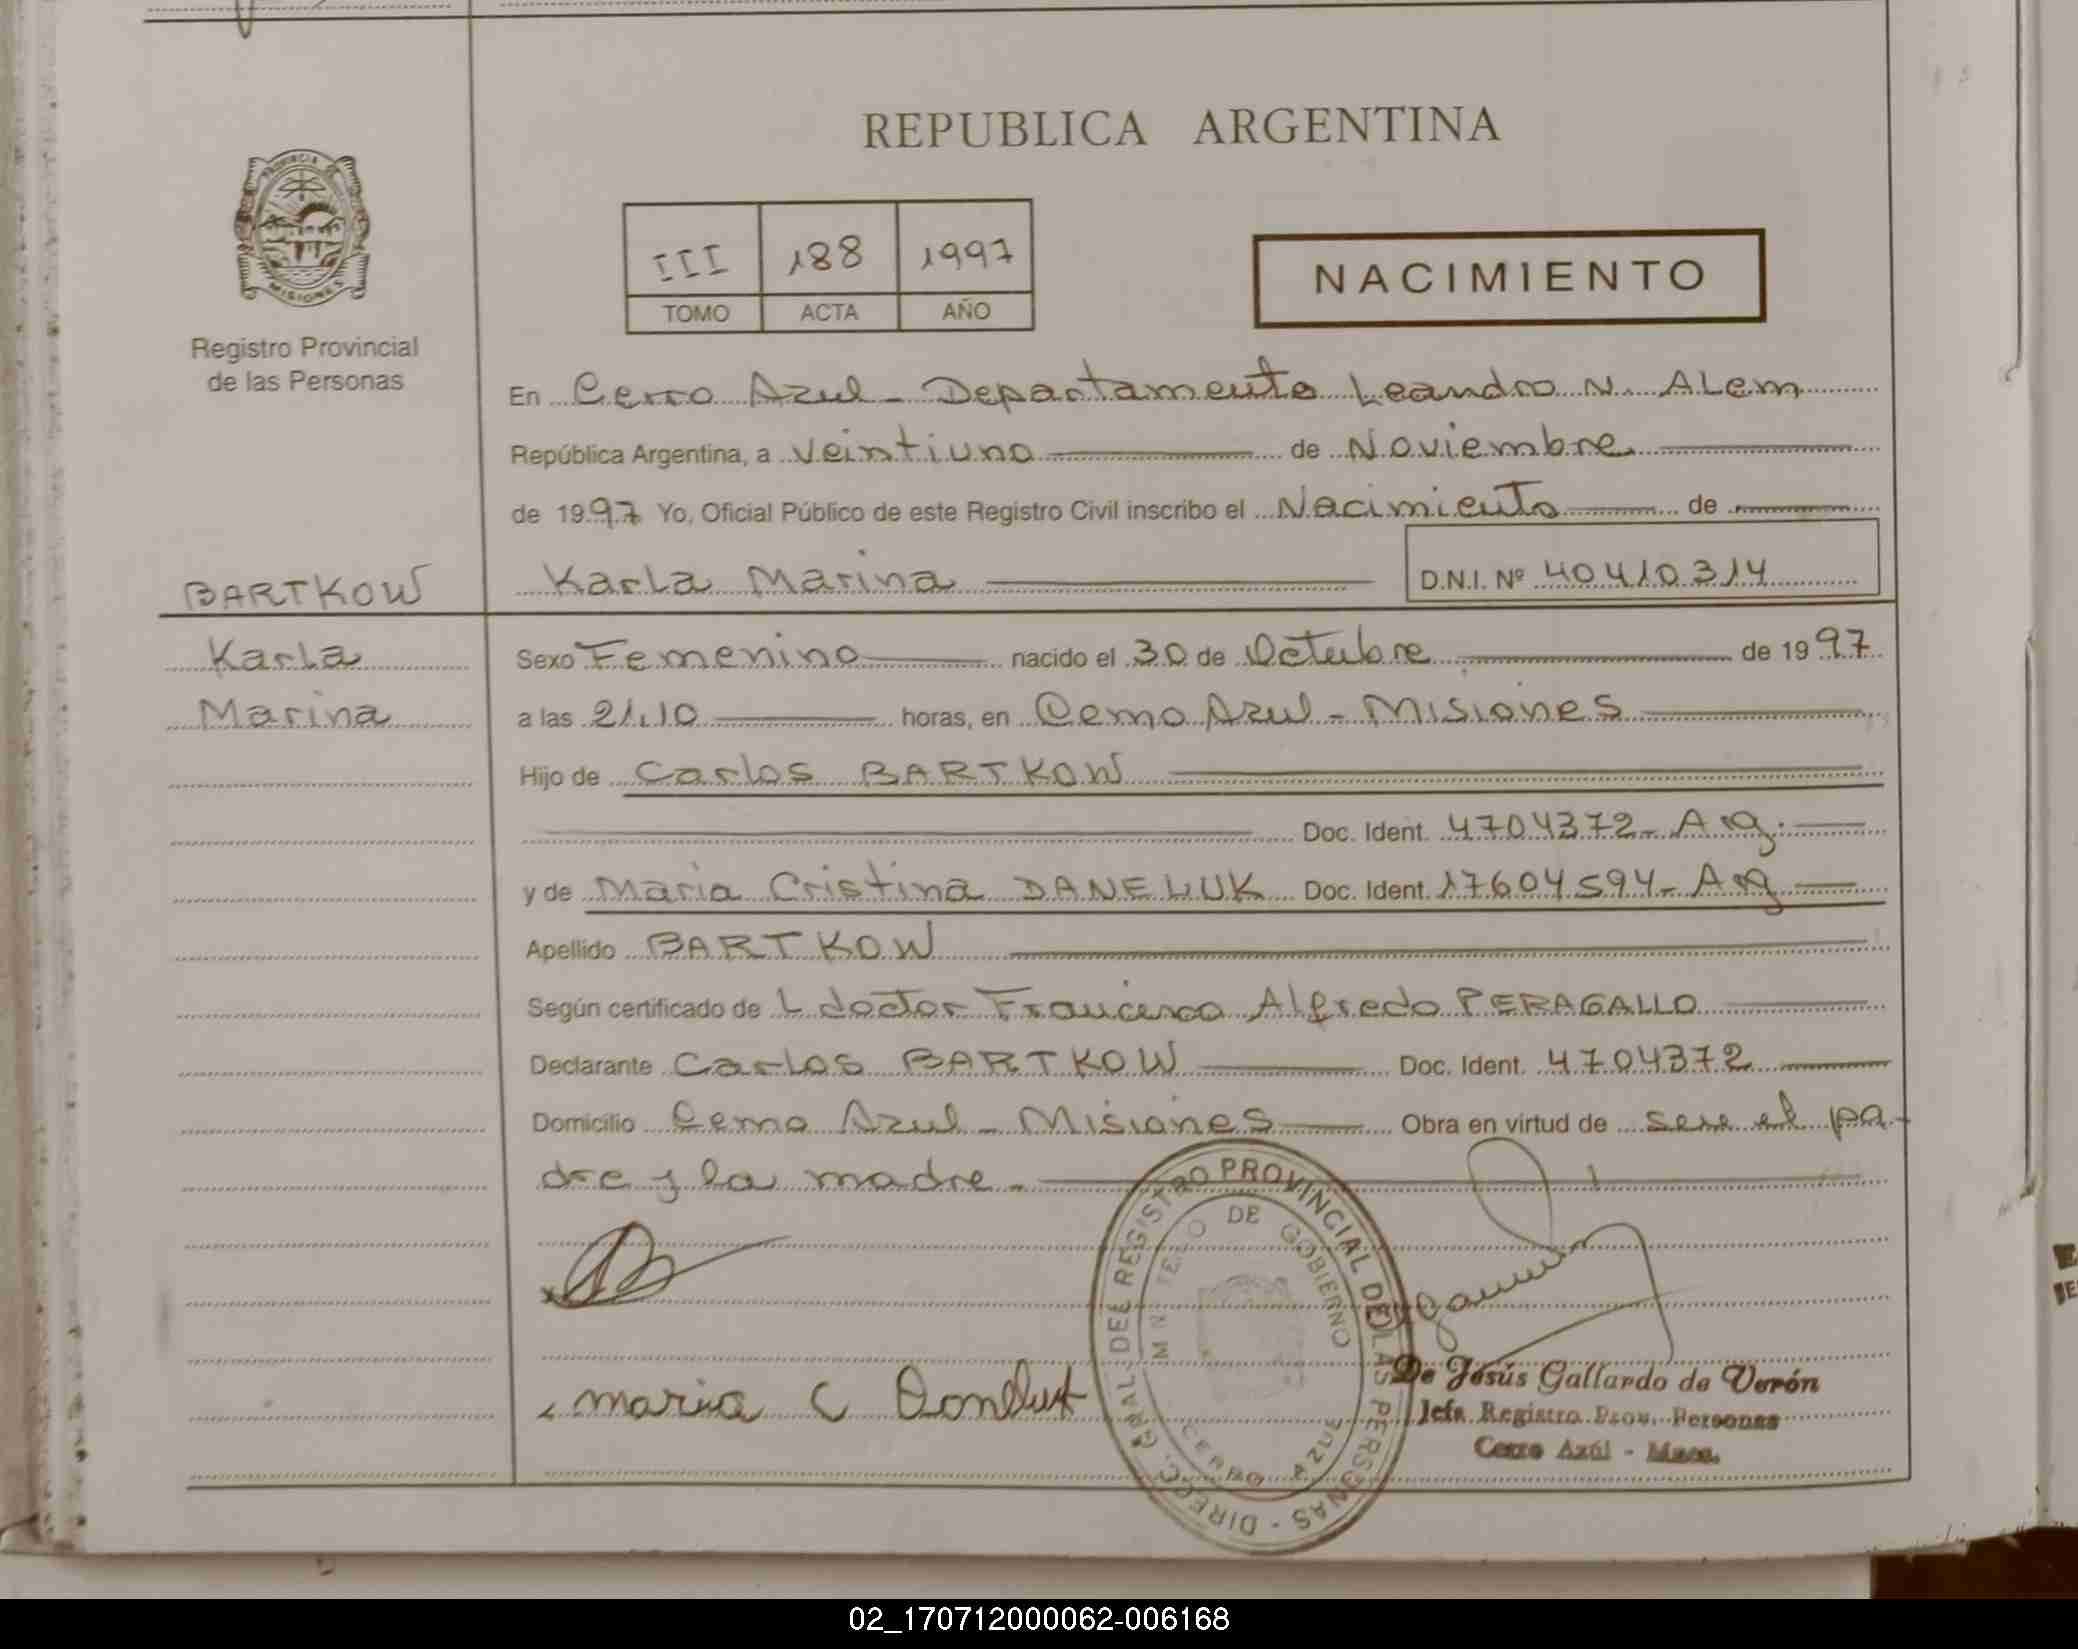 REPUBLICA ARGENTINA
PROVINCIA DE
MISIONES
Registro Provincial
de las Personas
III 188 1997
TOMO ACTA AÑO
NACIMIENTO
En Cerro Azul - Departamento Leandro N. ALem
República Argentina, a Veintiuno de Noviembre
de 1997 Yo, Oficial Público de este Registro Civil inscribo el Nacimiento de
Karla Marina D.N.I. Nº 40410314
BARTKOW
Karla
Marina
Sexo Femenino nacido el 30 de Octubre de 1997
a las 21.10 horas, en Cerro Azul - Misiones
Hijo de Carlos BARTKOW
Doc. Ident. 4704372- Arg.
y de Maria Cristina DANELUK Doc. Ident. 17604594- Arg
Apellido BARTKOW
Según certificado de L doctor Francisco Alfredo PERAGALLO
Declarante Carlos BARTKOW Doc. Ident. 4704372
Domicilio Cerro Azul - Misiones Obra en virtud de ser el pa-
dre y la madre.-
maria C
DIRECC. GRAL. DEL REGISTRO PROVINCIAL DE LAS PERSONAS -
MINISTERIO DE GOBIERNO
CERRO AZUL
De Jesús Gallardo de Verón
Jefa Registro Prov. Personas
Cerro Azúl - Mnes.
02_170712000062-006168